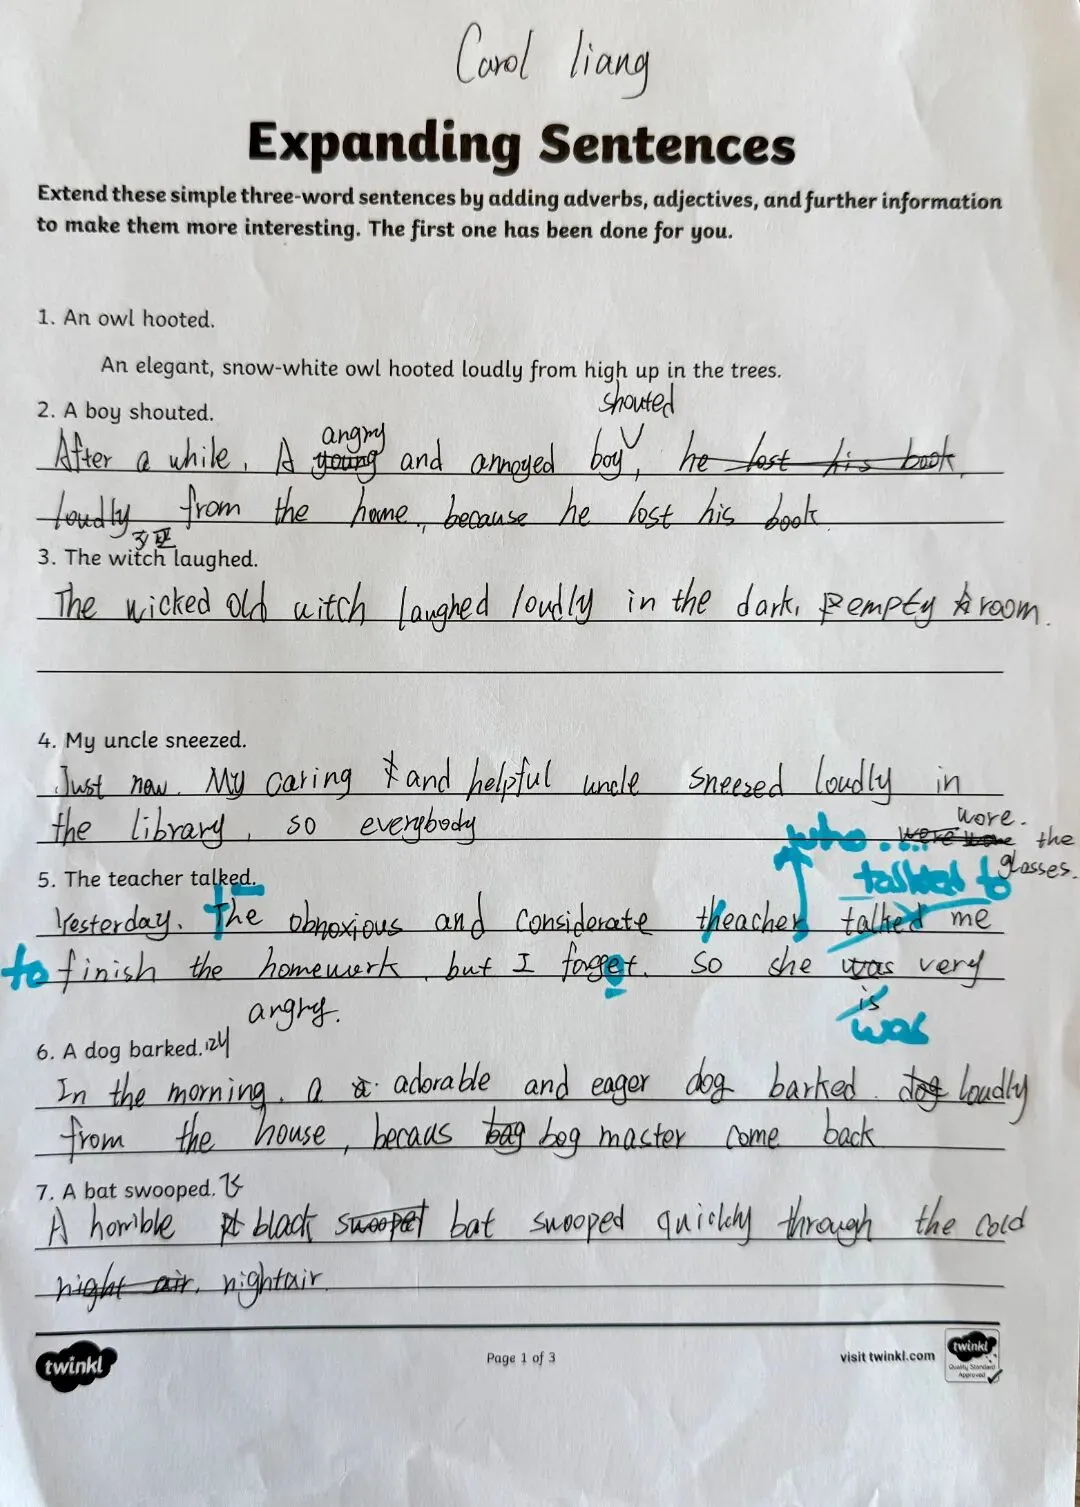 Carol liang
Expanding Sentences
Extend these simple three-word sentences by adding adverbs, adjectives, and further information
to make them more interesting. The first one has been done for you.
1. An owl hooted.
An elegant, snow-white owl hooted loudly from high up in the trees.
2. A boy shouted.
shouted
angry
After a while, A young and annoyed boy, he lost his book,
loudly from the home, because he lost his book
3. The witch laughed.
The wicked old witch laughed loudly in the dark, empty room.
4. My uncle sneezed.
Just now. My caring and helpful uncle sneezed loudly in
the library, so everybody
wore.
who.... were wore the
5. The teacher talked.
talked to glasses.
Yesterday, The obnoxious and considerate theacher talked me
to finish the homework, but I forget. so she was very
is
angry. was
6. A dog barked.
In the morning, a adorable and eager dog barked. dog loudly
from the house, becaus bag bog master come back
7. A bat swooped. 飞
A horrible black swooped bat swooped quickly through the cold
night air. nightair.
twinkl
Page 1 of 3
visit twinkl.com
twinkl
Quality Standard
Approved